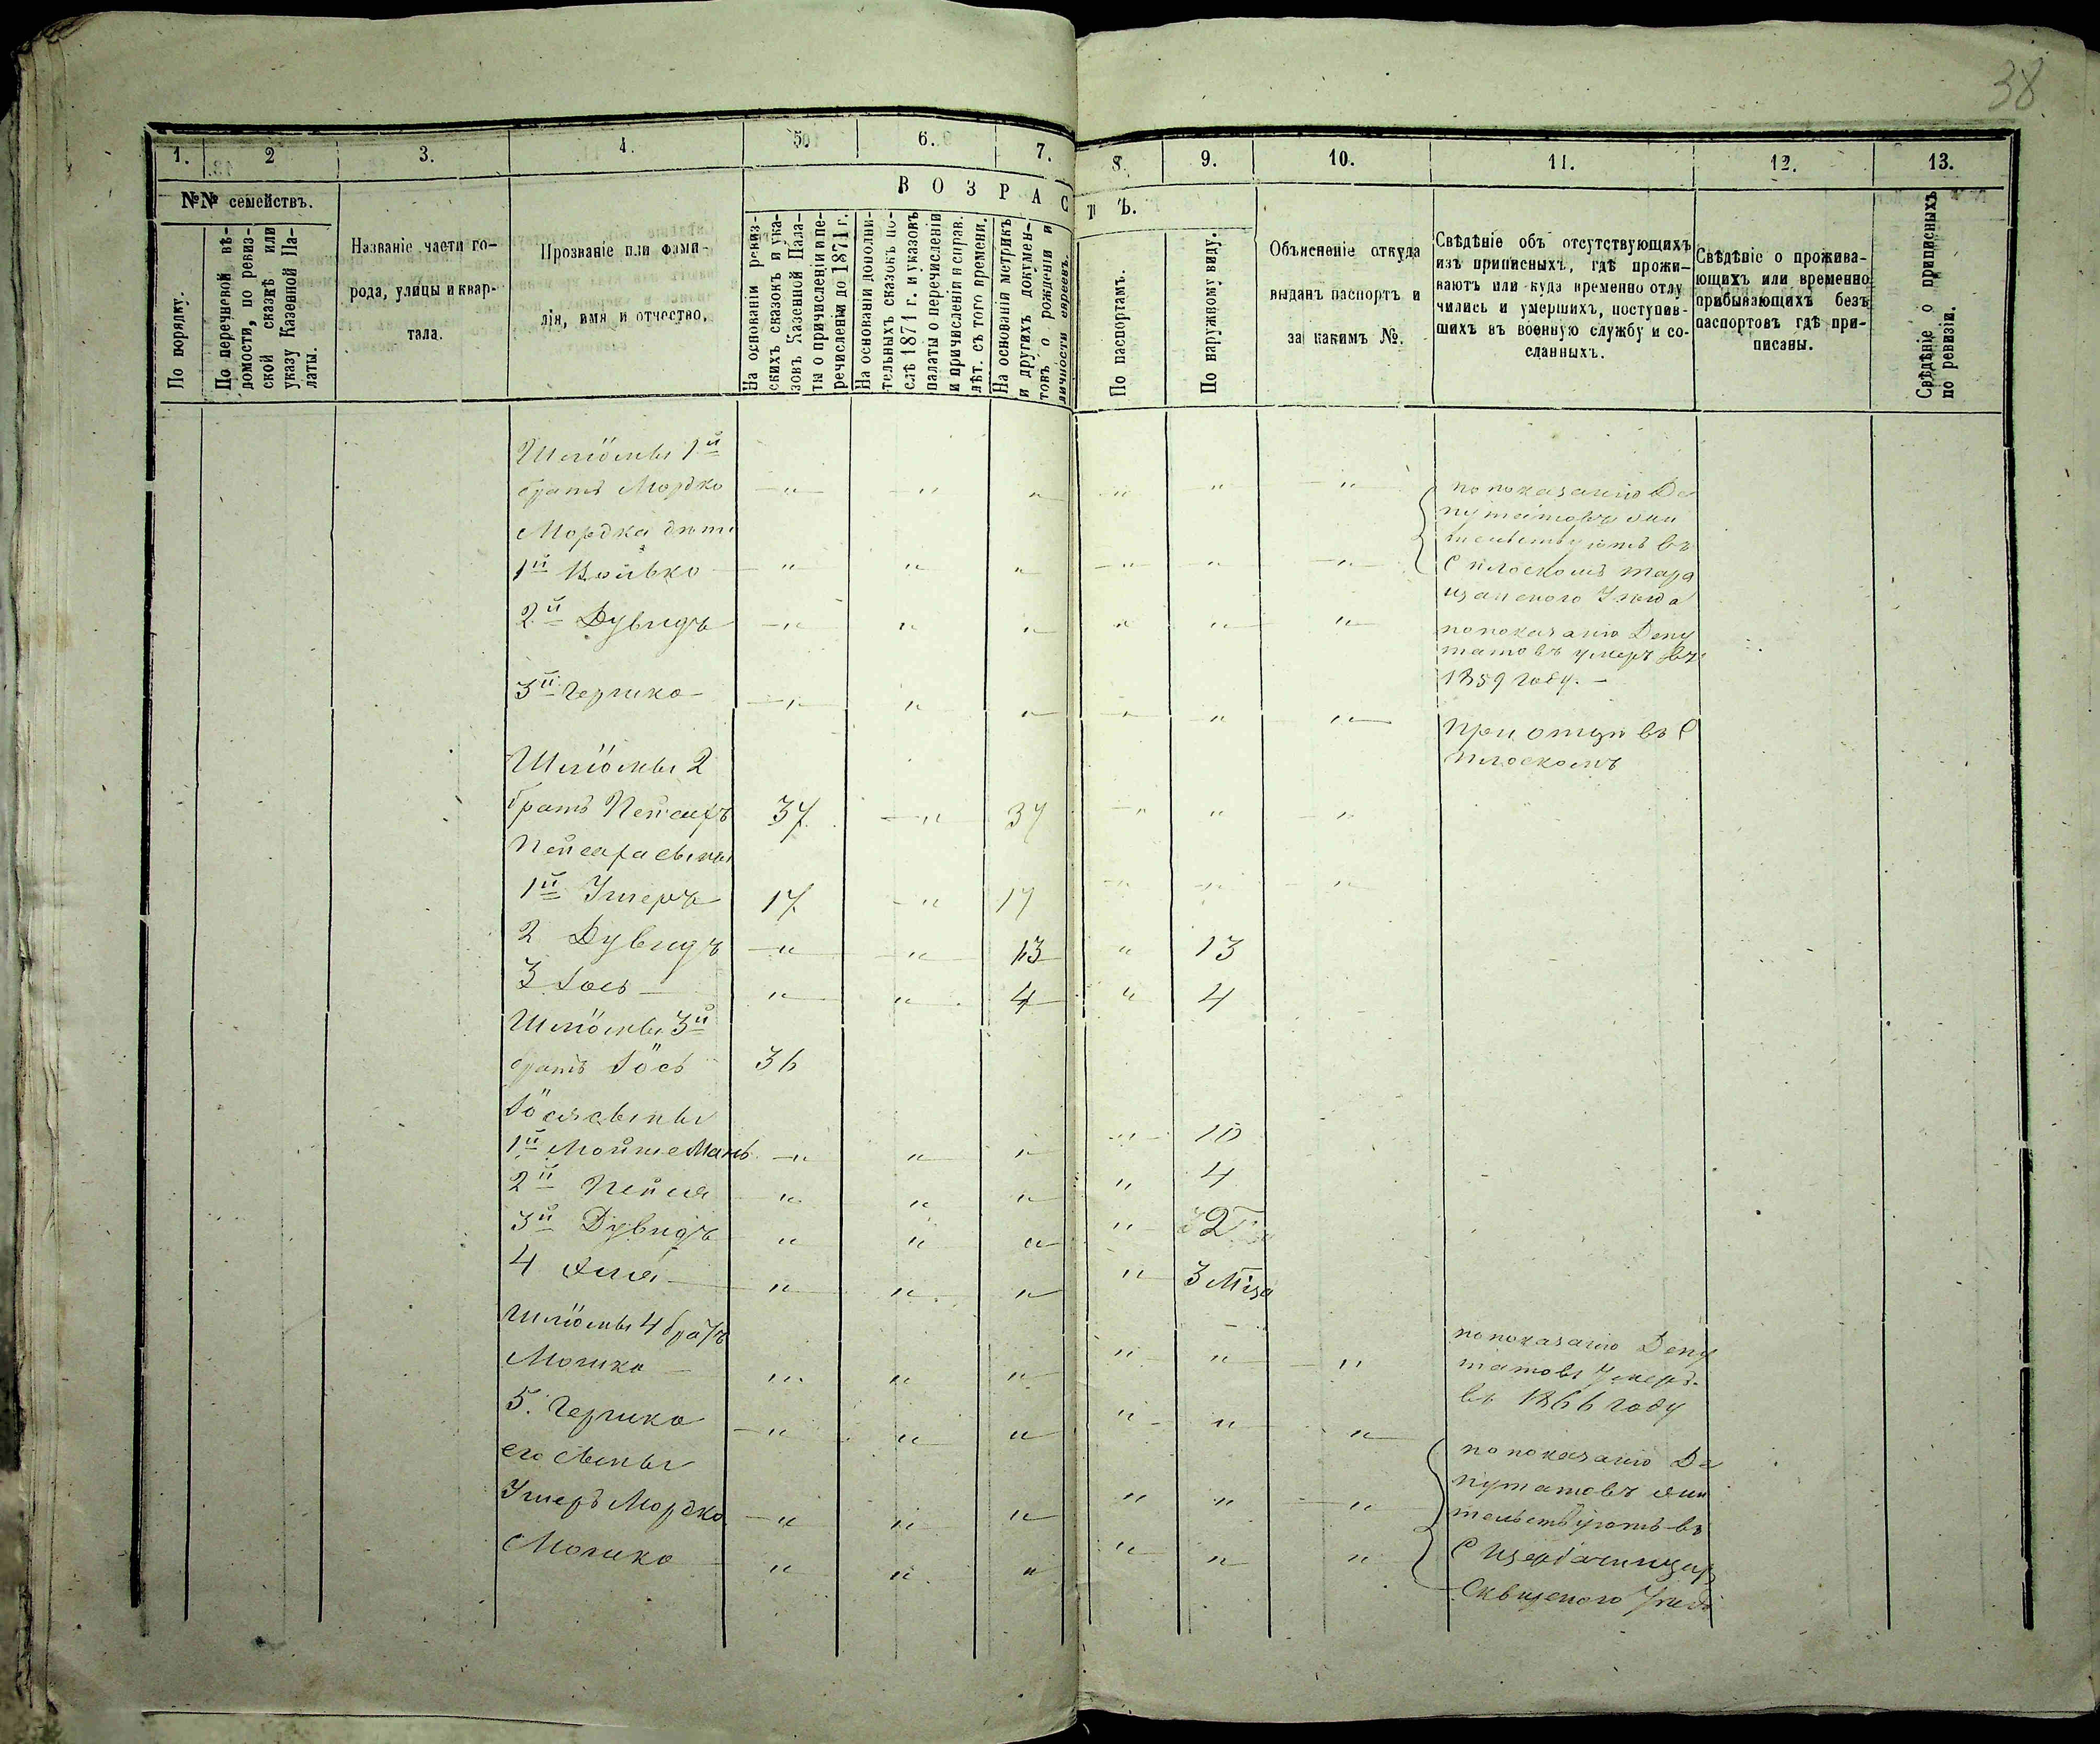 38
1. 2 3. 4. 5. 6. 7. 8. 9. 10. 11. 12. 13.
№№ семействъ.
По порядку.
По перечневой вѣ-
домости, по ревиз-
ской сказкѣ или
указу Казенной Па-
латы.
Названіе части го-
рода, улицы и квар-
тала.
Прозваніе или фами-
лія, имя и отчество.
ВОЗРАСТЪ.
На основаніи ревиз-
скихъ сказокъ и ука-
зовъ Казенной Пала-
ты о причисленіи и пе-
речисленіи до 1871 г.
На основаніи дополни-
тельныхъ сказокъ по-
слѣ 1871 г. и указовъ
палаты о перечисленіи
и причисленіи и справ.
лѣт. съ того времени.
На основаніи метрикъ
и другихъ докумен-
товъ о рожденіи и
личности евреевъ.
По паспортамъ.
По наружному виду.
Объясненіе откуда
выданъ паспортъ и
за какимъ №.
Свѣдѣніе объ отсутствующихъ
изъ приписныхъ, гдѣ прожи-
ваютъ или куда временно отлу
чились и умершихъ, поступив-
шихъ въ военную службу и со-
сланныхъ.
Свѣдѣніе о прожива-
ющихъ или временно
прибывающихъ безъ
паспортовъ гдѣ при-
писаны.
Свѣдѣніе о приписныхъ
по ревизіи.
Шлёмы 1й
братъ Мордко — " — — " " — " — " — " —
по показанію Де
путатовъ жи
тельствуютъ въ
С плоскомъ тара
щанского Уезда
Мордка дети
1й Волько — " — " " — " — " — " —
2й Дувидъ — " — " " " " — " —
по показанію Депу
татовъ умеръ въ
1859 году. —
3й Гершко — " — " " — " — " " —
При отце въ С
плоскомъ
Шлёмы 2
братъ Пейсахъ 37 — " 37 — " " — "
Пейсаха сыны
1й Ушеръ 17 — " 17 — " — " — "
2 Дувидъ — " — — " — 13 " 13
3 Іось — " — " — 4 " 4
Шлёмы 3й
братъ Іось 36
Іося сыны
1й Мойше Мань — " " — " — " — 10
2й Пейся " — " — " " 4
3й Дувидъ " " " " — 2
4 " — " — " " — 3 Мца
Шлёмы 4 братъ
Мошко — " " " " " — "
по показанію Депу
татовъ Умеръ
въ 1866 году
5. Гершко — " — " " " — " "
его сыны
Ушеръ Мордко — " " " " " — "
по показанію Де
путатовъ жи
тельствуютъ въ
С
Сквирского Уезда
Мошко " " " " — " "